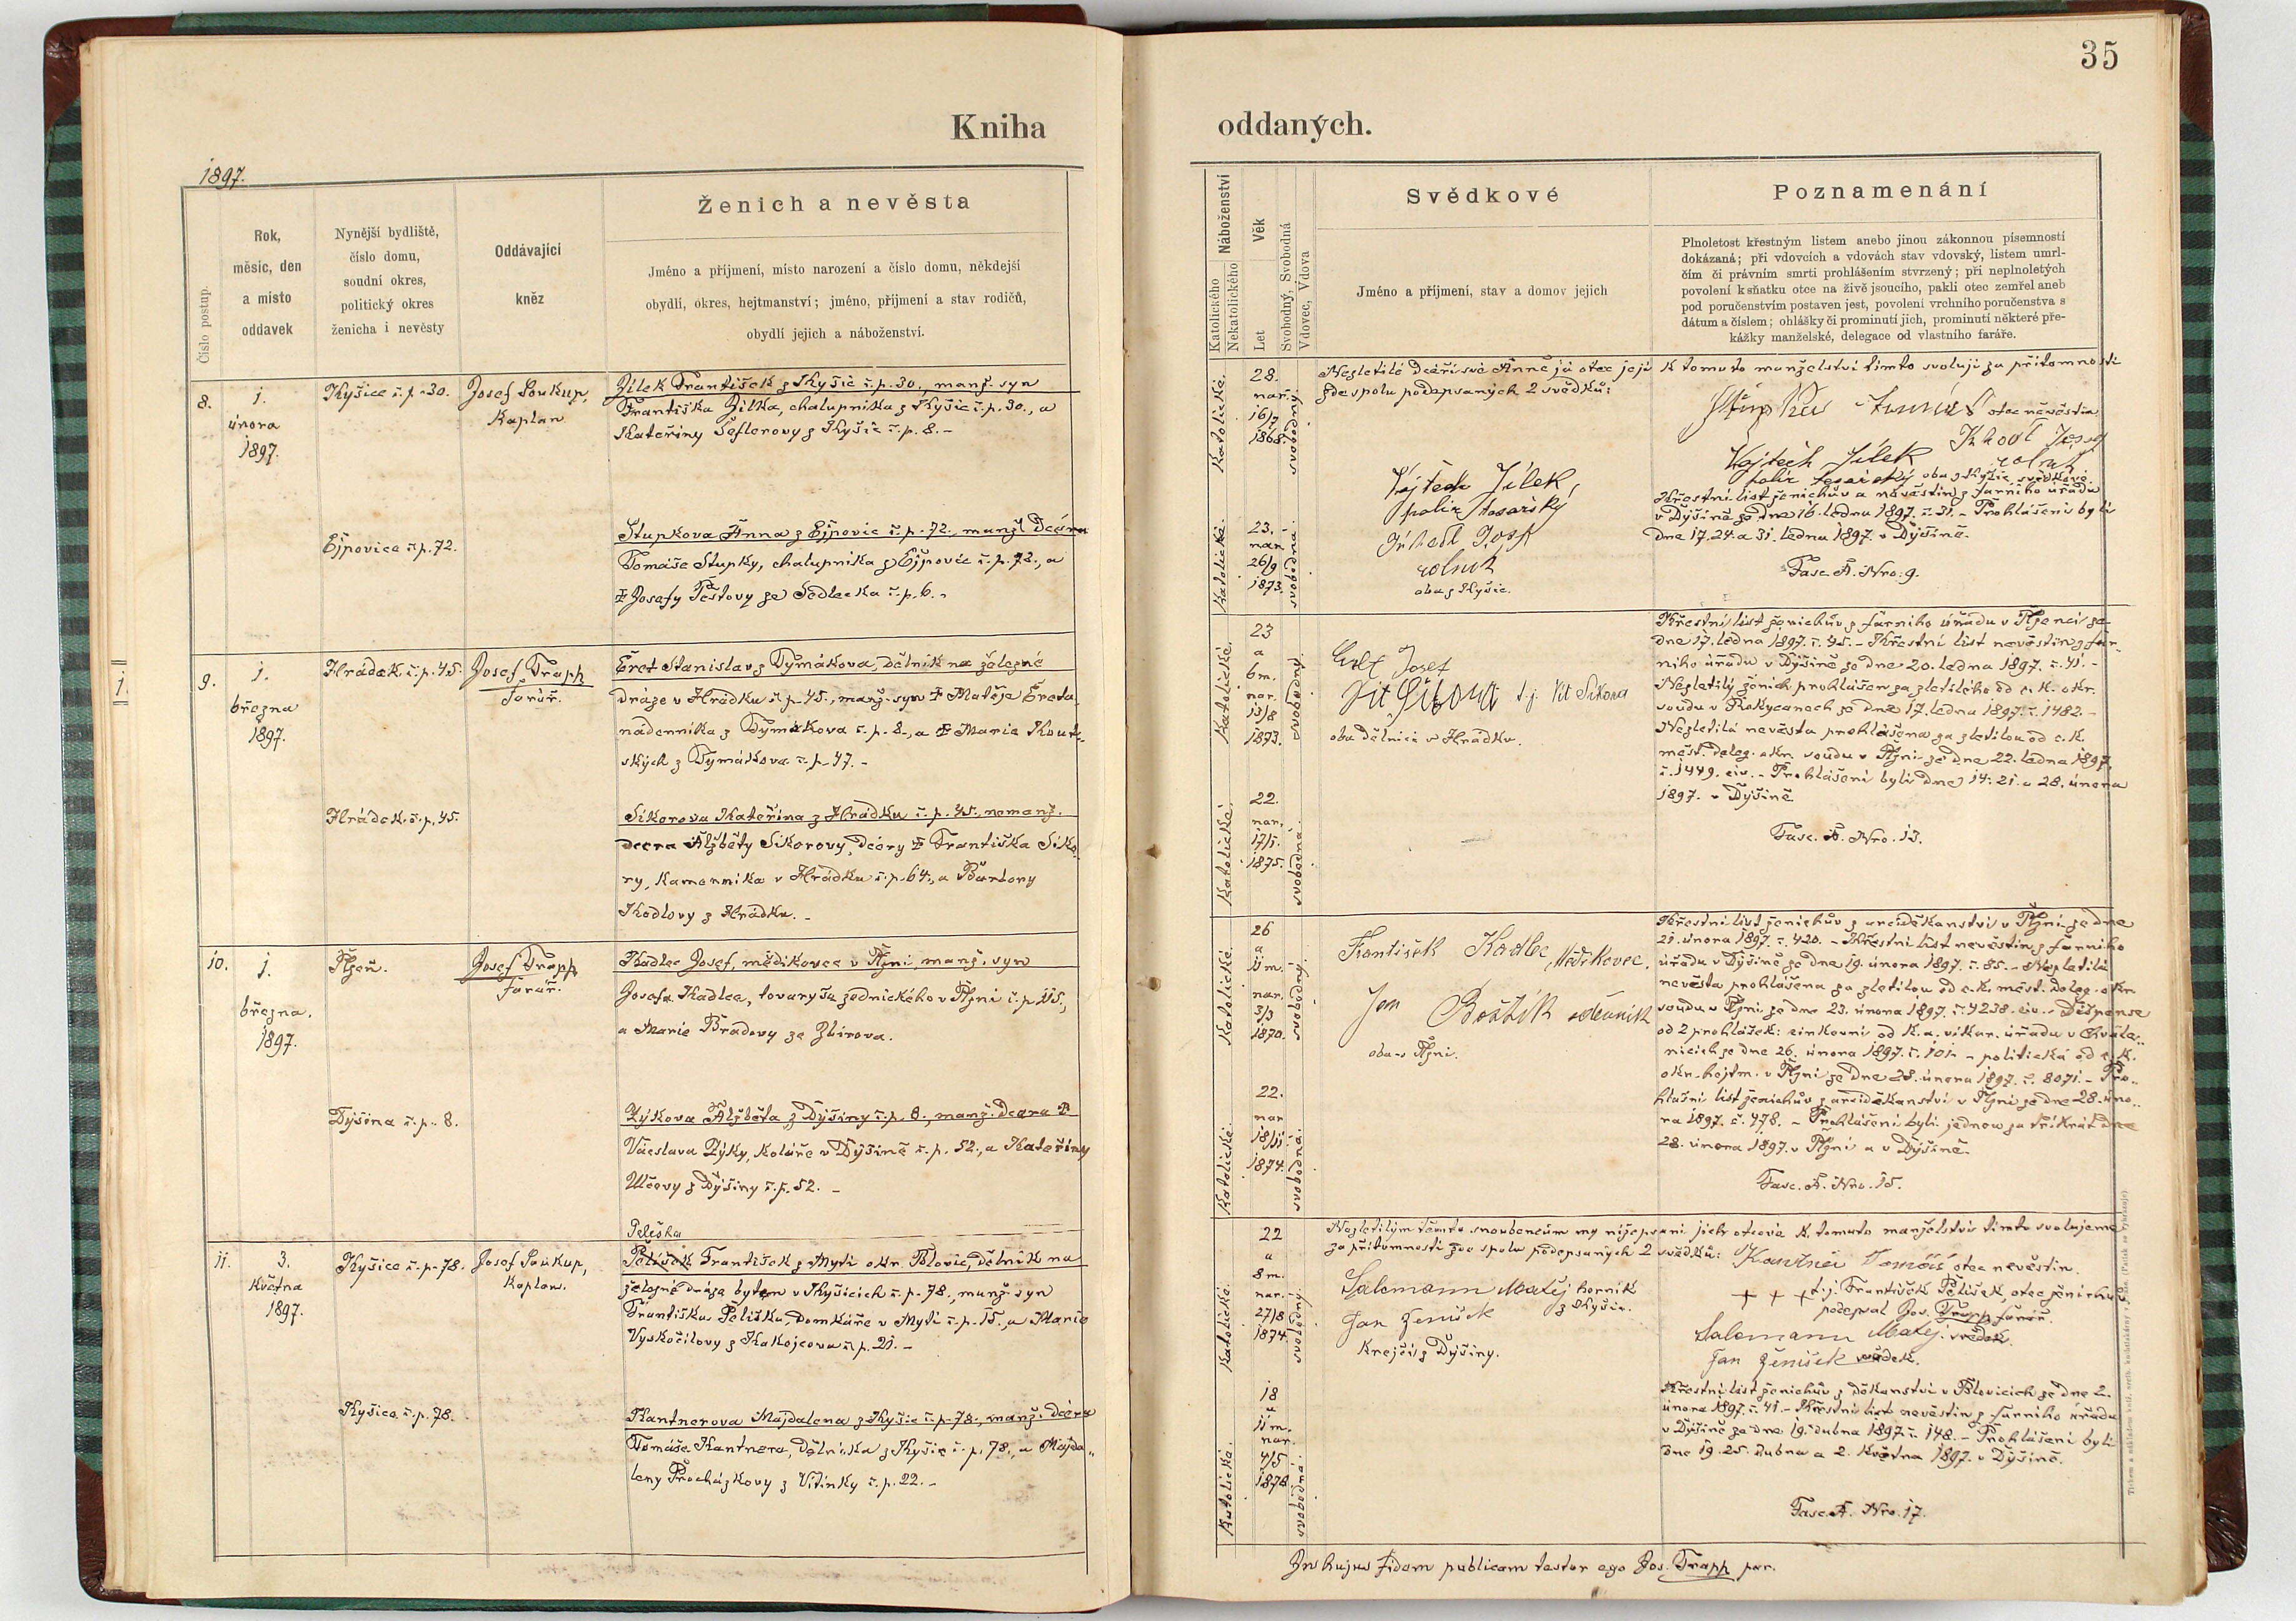 35
Kniha
oddaných.
1897.
Číslo postup.
Rok,
měsíc, den
a místo
oddavek
Nynější bydliště,
číslo domu,
soudní okres,
politický okres
ženicha i nevěsty
Oddávající
kněz
Ženich a nevěsta
Jméno a příjmení, místo narození a číslo domu, někdejší
obydlí, okres, hejtmanství; jméno, příjmení a stav rodičů,
obydlí jejich a náboženství.
Náboženství
Katolického
Nekatolického
Věk
Let
Svobodný, Svobodná
Vdovec, Vdova
Svědkové
Jméno a příjmení, stav a domov jejich
Poznamenání
Plnoletost křestným listem anebo jinou zákonnou písemností
dokázaná; při vdovcích a vdovách stav vdovský, listem umrl-
čím či právním smrti prohlášením stvrzený; při neplnoletých
povolení k sňatku otce na živě jsoucího, pakli otec zemřel aneb
pod poručenstvím postaven jest, povolení vrchního poručenstva s
dátum a číslem; ohlášky či prominutí jich, prominutí některé pře-
kážky manželské, delegace od vlastního faráře.
8.
1.
února
1897.
Kyšice č.p. 30.
Josef Soukup,
Kaplan
Jílek František z Kyšic č.p. 30., manž. syn
Františka Jílka, chalupníka z Kyšic č.p. 30., a
Kateřiny Šeflerovy z Kyšic č.p. 8. -
Ejpovice č.p. 72.
Stupkova Anna z Ejpovic č.p. 72., manžl. dcéra
Tomáše Stupky, chalupníka z Ejpovic č.p. 72., a
Josefy Teštovy ze Sedlecka č.p. 6. -
katolické.
28.
nar.
16/7
1868.
svobodný.
katolické.
23.
nar.
26/9
1873.
svobodná.
Nezletilé dceři své Anně já otec její k tomuto manželství tímto svoluji za přítomnosti
zde spolu podepsaných 2 svědků:
Vojtěch Jílek,
polír tesařský
Josef
rolník
oba z Kyšic.
otec nevěstin
Vojtěch Jílek
rolník
polír tesařský oba z Kyšic, svědkové.
Křestní list ženichův a nevěstin z farního úřadu
v Dýšině ze dne 16. ledna 1897. č. 31. - Prohlášeni byli
dne 17. 24. a 31. ledna 1897. v Dýšině.
Fasc. A. Nro: 9.
1.
9.
1.
března
1897.
Hrádek č.p. 45.
Josef Trapp
farář.
Eret Stanislav z Tymákova, dělník na železné
dráze v Hrádku č.p. 45., manž. syn Matěje Ereta,
nádenníka z Tymákova č.p. 8., a Marie Kout-
ských z Tymákova č.p. 47. -
Hrádek č.p. 45.
Sikorova Kateřina z Hrádku č.p. 45., nemanž.
dcera Alžběty Sikorovy, dcéry Františka Siko-
ry, kamenníka v Hrádku č.p. 64., a Barbory
Kadlovy z Hrádku. -
katolické.
23
a
6 m.
nar.
13/8
1873.
svobodný.
katolické.
22.
nar.
17/1.
1875.
svobodná.
Josef
t.j. Vít Sikora
oba dělníci v Hrádku.
Křestní list ženichův z farního úřadu v Plzenci ze
dne 17. ledna 1897. č. 45. - Křestní list nevěstin z far-
ního úřadu v Dýšině ze dne 20. ledna 1897. č. 41. -
Nezletilý ženich prohlášen za zletilého od c. k. okr.
soudu v Rokycanech ze dne 17. ledna 1897. č. 1482. -
Nezletilá nevěsta prohlášena za zletilou od c. k.
měst. deleg. okr. soudu v Plzni ze dne 22. ledna 1897.
č. 1449. civ. - Prohlášeni byli dne 14. 21. a 28. února
1897. v Dýšině
Fasc. A. Nro. 13.
10.
1.
března.
1897.
Plzeň.
Josef Trapp
farář.
Kadlec Josef, mědikovec v Plzni, manž. syn
Josefa Kadlea, tovaryše zednického v Plzni č.p. 115.,
a Marie Bradovy ze Zbirova.
Dýšina č.p. 8.
Zýkova Alžběta z Dýšiny č.p. 8., manž. dcera
Václava Zýky, koláře v Dýšině č.p. 52., a Kateřiny
Ulčovy z Dýšiny č.p. 52. -
katolické.
26
a
11 m.
nar.
3/3
1870.
svobodný.
katolické.
22.
nar
18/11
1874.
svobodná.
František Kadlec, Mědikovec.
Jan Boštík oděvník
oba v Plzni.
Křestní list ženichův z arciděkanství v Plzni ze dne
21. února 1897. č. 420. - Křestní list nevěstin z farního
úřadu v Dýšině ze dne 19. února 1897. č. 85. - Nezletilá
nevěsta prohlášena za zletilou od c. k. měst. deleg. okr.
soudu v Plzni ze dne 23. února 1897. č. 4238. civ. - Dispense
od 2 prohlášek: církevní od k. a. vikar. úřadu v Chvále-
nicích ze dne 26. února 1897. č. 101. - politická od c. k.
okr. hejtm. v Plzni ze dne 28. února 1897. č. 8071. - Pro-
hlašní list ženichův z arciděkanství v Plzni ze dne 28. úno-
ra 1897. č. 478. - Prohlášeni byli jednou za třikrát dne
28. února 1897. v Plzni a v Dýšině.
Fasc. A. Nro. 15.
11.
3.
května
1897.
Kyšice č.p. 78.
Josef Soukup,
Kaplan.
Peliška
Pelíšek František z Mýti okr. Blovic, dělník na
železné dráze bytem v Kyšicích č.p. 78., manž. syn
Františka Pelíška, domkáře v Mýti č.p. 15., a Marie
Vyskočilovy z Kakejcova č.p. 21. -
Kyšice č.p. 78.
Kantnerova Majdalena z Kyšic č.p. 78., manž. dcéra
Tomáše Kantnera, dělníka z Kyšic č.p. 78., a Majda-
leny Procházkovy z Vitinky č.p. 22. -
katolické.
22
a
8 m.
nar.
27/8
1874
svobodný.
katolická.
18
a
11 m.
nar.
4/5
1878.
svobodná.
Nezletilým těmto snoubencům my nížepsaní jich otcové k tomuto manželství tímto svolujeme
za přítomnosti zde spolu podepsaných 2 svědků:
Salomann Matěj horník
z Kyšic.
Jan Ženíšek
krejčí z Dýšiny.
Tomáš otec nevěstin.
+ + + t.j. František Pelíšek, otec ženichův
podepsal Jos. Trapp farář.
Salomann Matěj. svědek.
Jan Ženíšek svědek.
Křestní list ženichův z děkanství v Blovicích ze dne 2.
února 1897. č. 41. - Křestní list nevěstin z farního úřadu
v Dýšině ze dne 19. dubna 1897. č. 148. - Prohlášeni byli
dne 19. 25. dubna a 2. května 1897. v Dýšině.
Fasc. A. Nro. 17.
In hujus fidem publicam testor ego Jos. Trapp par.